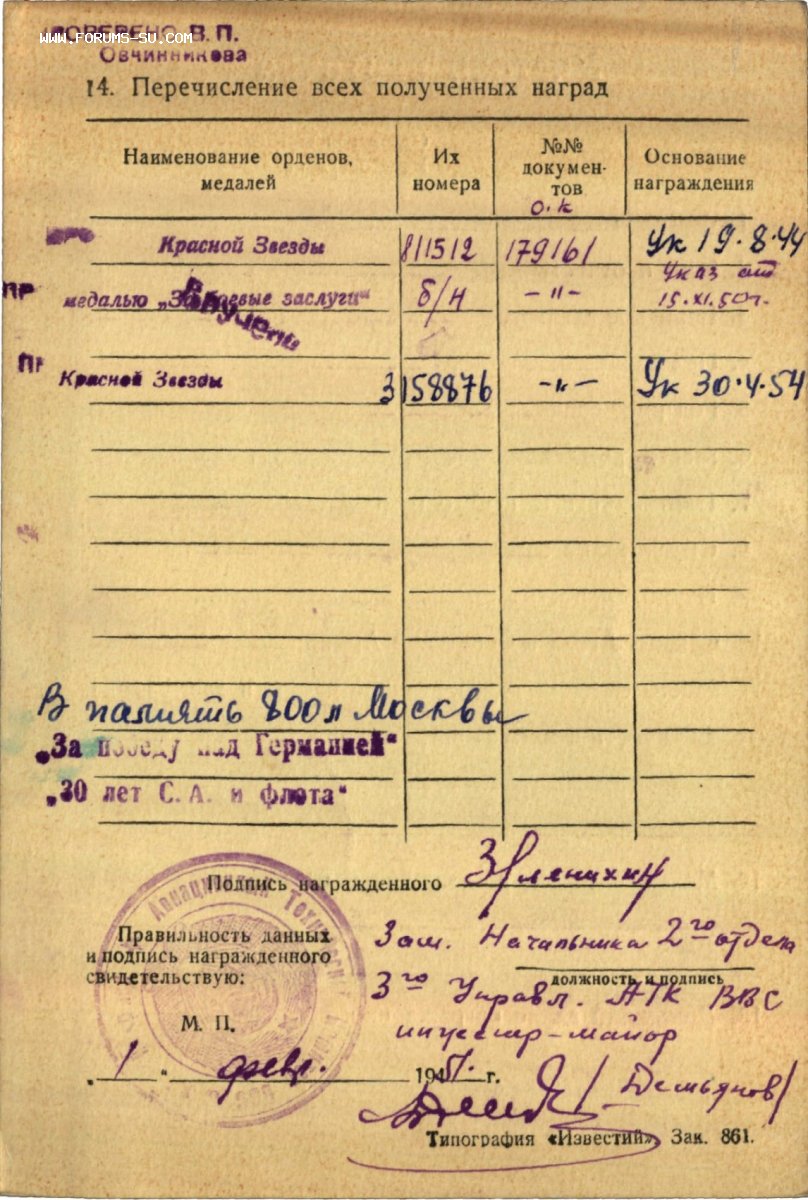 www.forums-su.com
В. П.
Овчинникова
14. Перечисление всех полученных наград
Наименование орденов, медалей
Их номера
№№ документов
Основание награждения
О.К
Красной Звезды 811512 179161 Ук 19.8.44
ПР медалью „За боевые заслуги“ б/н –"– Указ от 15.XI.50г.
Вручена
ПР Красной Звезды 3158876 –"– Ук 30.4.54
В память 800л Москвы
„За победу над Германией“
„30 лет С. А. и флота“
Подпись награжденного
Правильность данных
и подпись награжденного
свидетельствую:
Зам. Начальника 2го отдела
должность и подпись
3го Управл. АТК ВВС
инженер-майор
М. П.
„1“ февр. 1947. г.
/Демьянов/
Типография «Известий». Зак. 861.